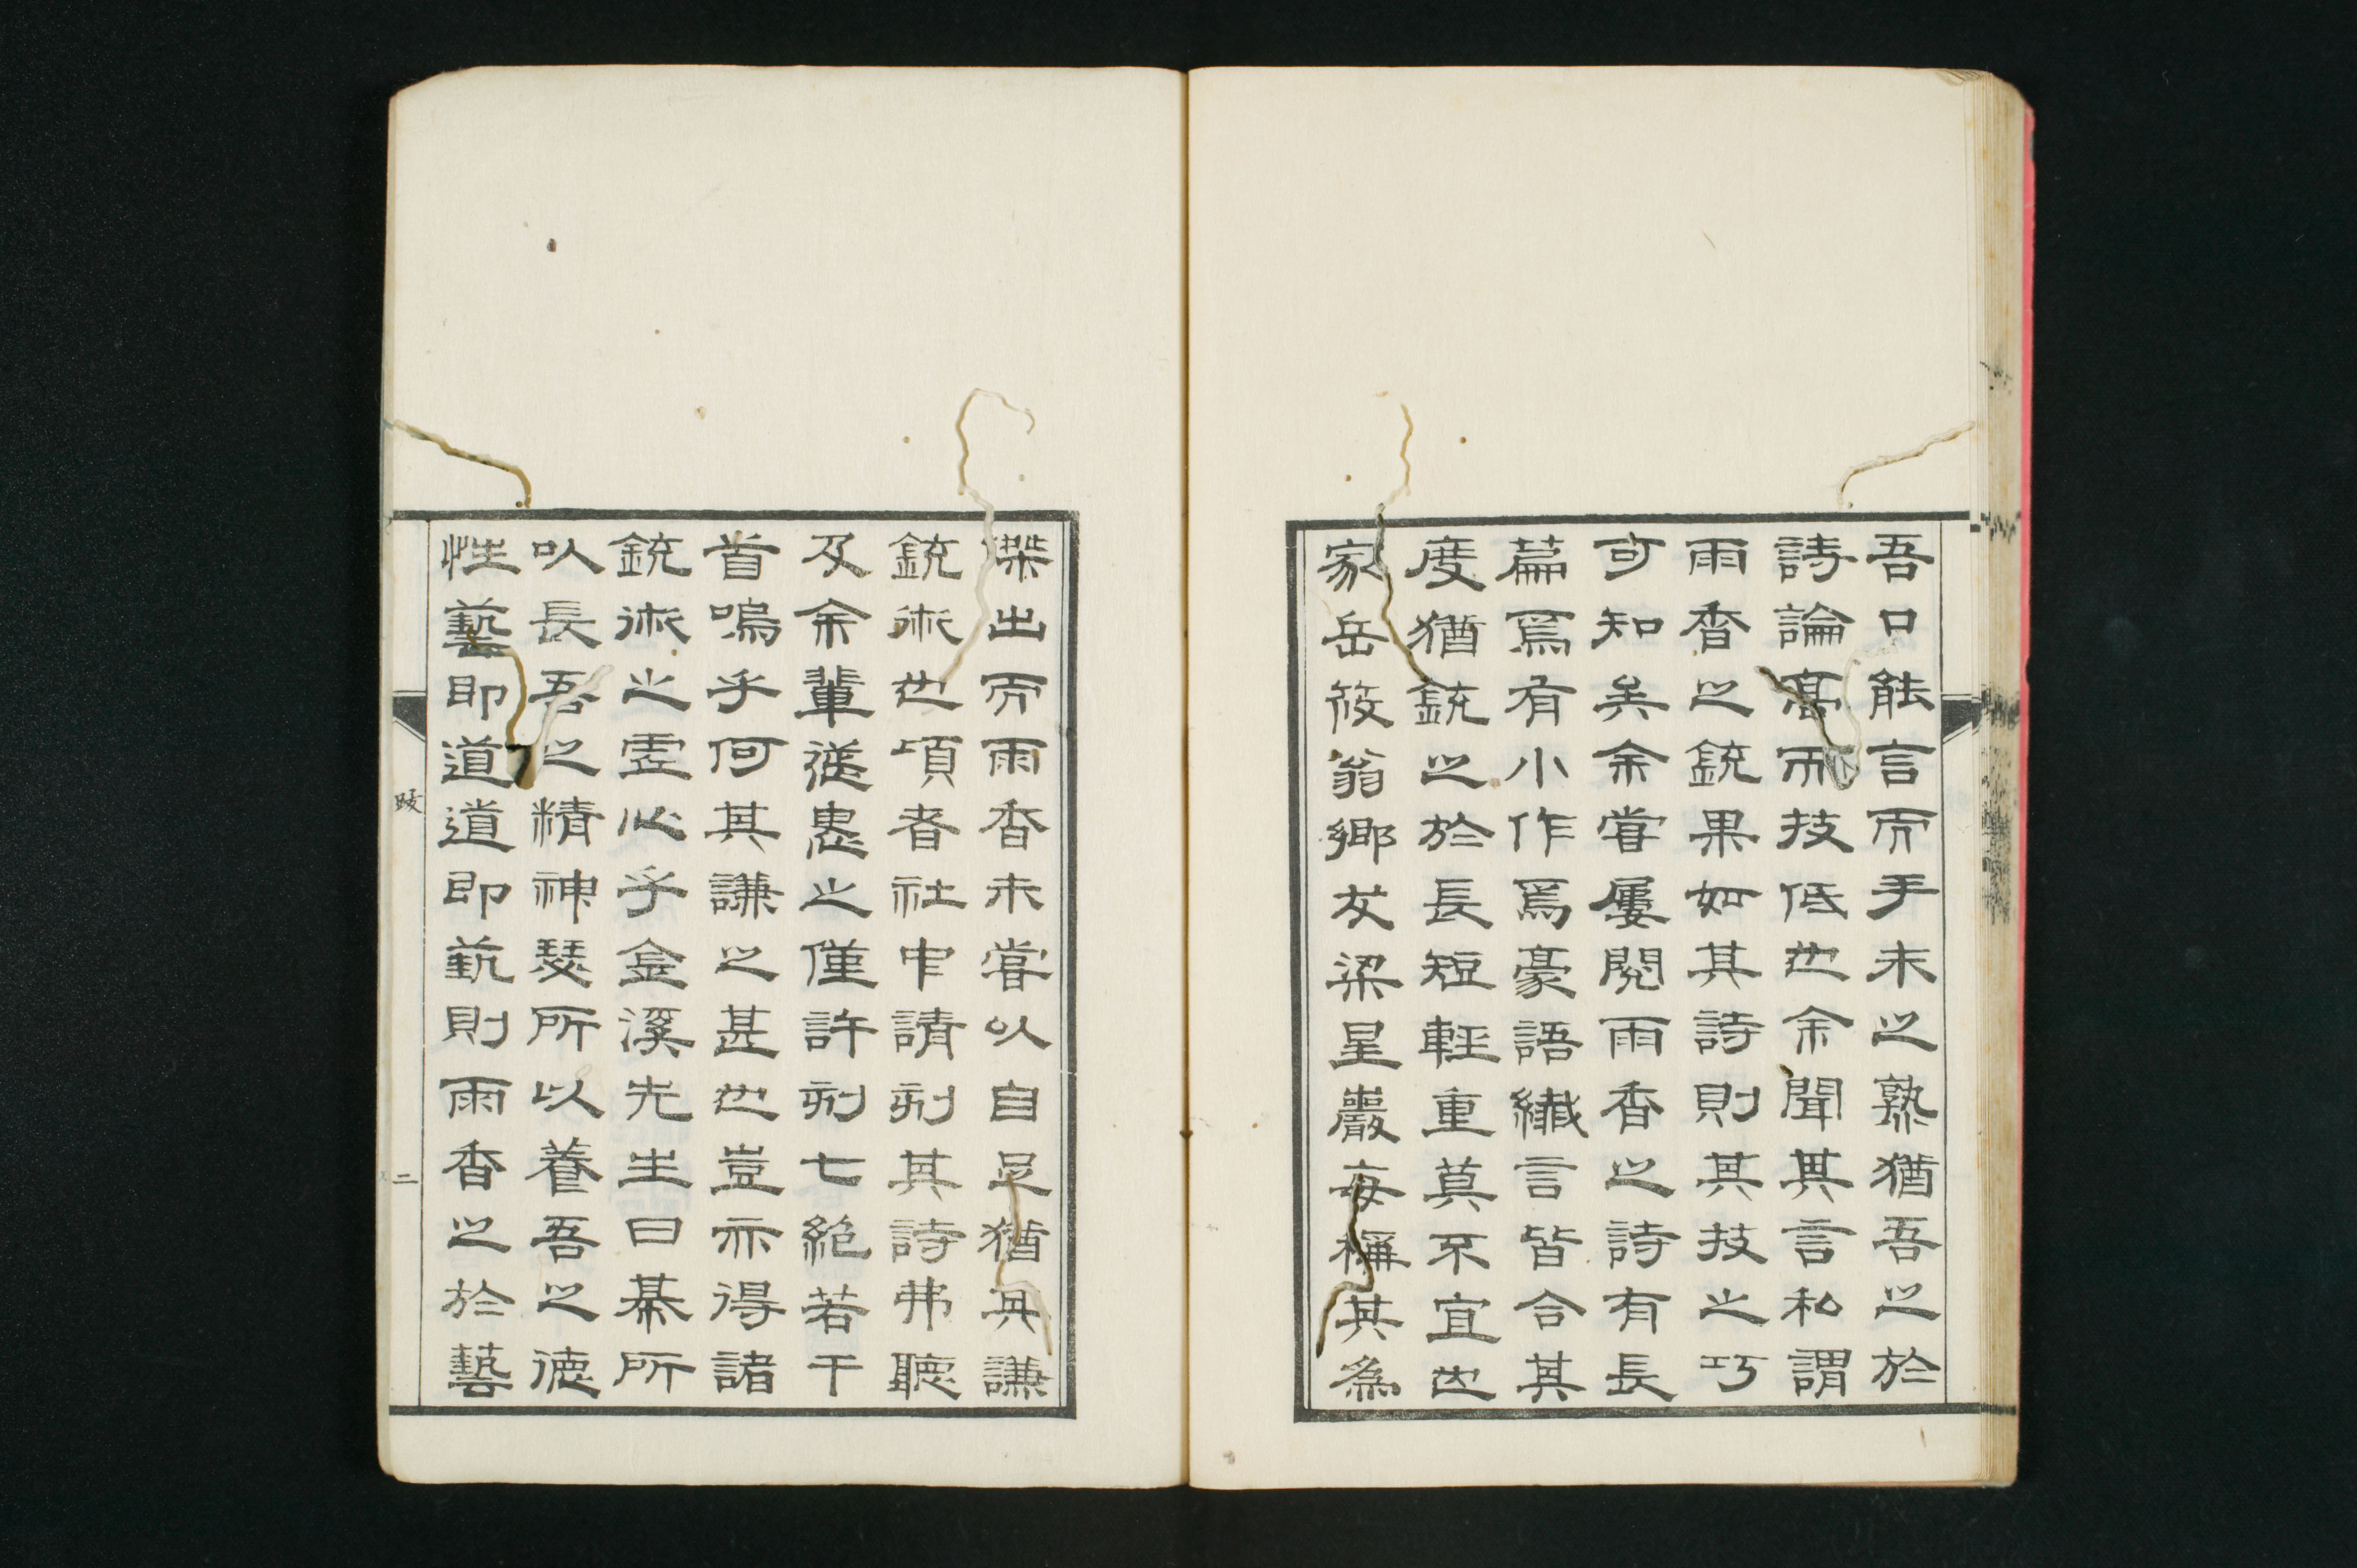 吾口能言而手未之熟猶吾之於
詩論高而技低也余聞其言私謂
雨香之銃果如其詩則其技之巧
可知矣余嘗屢閱雨香之詩有長
篇焉有小作焉豪語纖言皆合其
度猶銃之於長短輕重莫不宜也
家岳筱翁鄉友梁星巖每稱其為
傑出而雨香未嘗以自足猶其謙
銃術也項者社中請刻其詩弗聽
及余輩慫慂之僅許刻七絕若干
首嗚乎何其謙之甚也豈亦得諸
銃術之虛心乎金溪先生曰藝所
以長吾之精神瑟所以養吾之德
性藝即道道即藝則雨香之於藝
跋
二